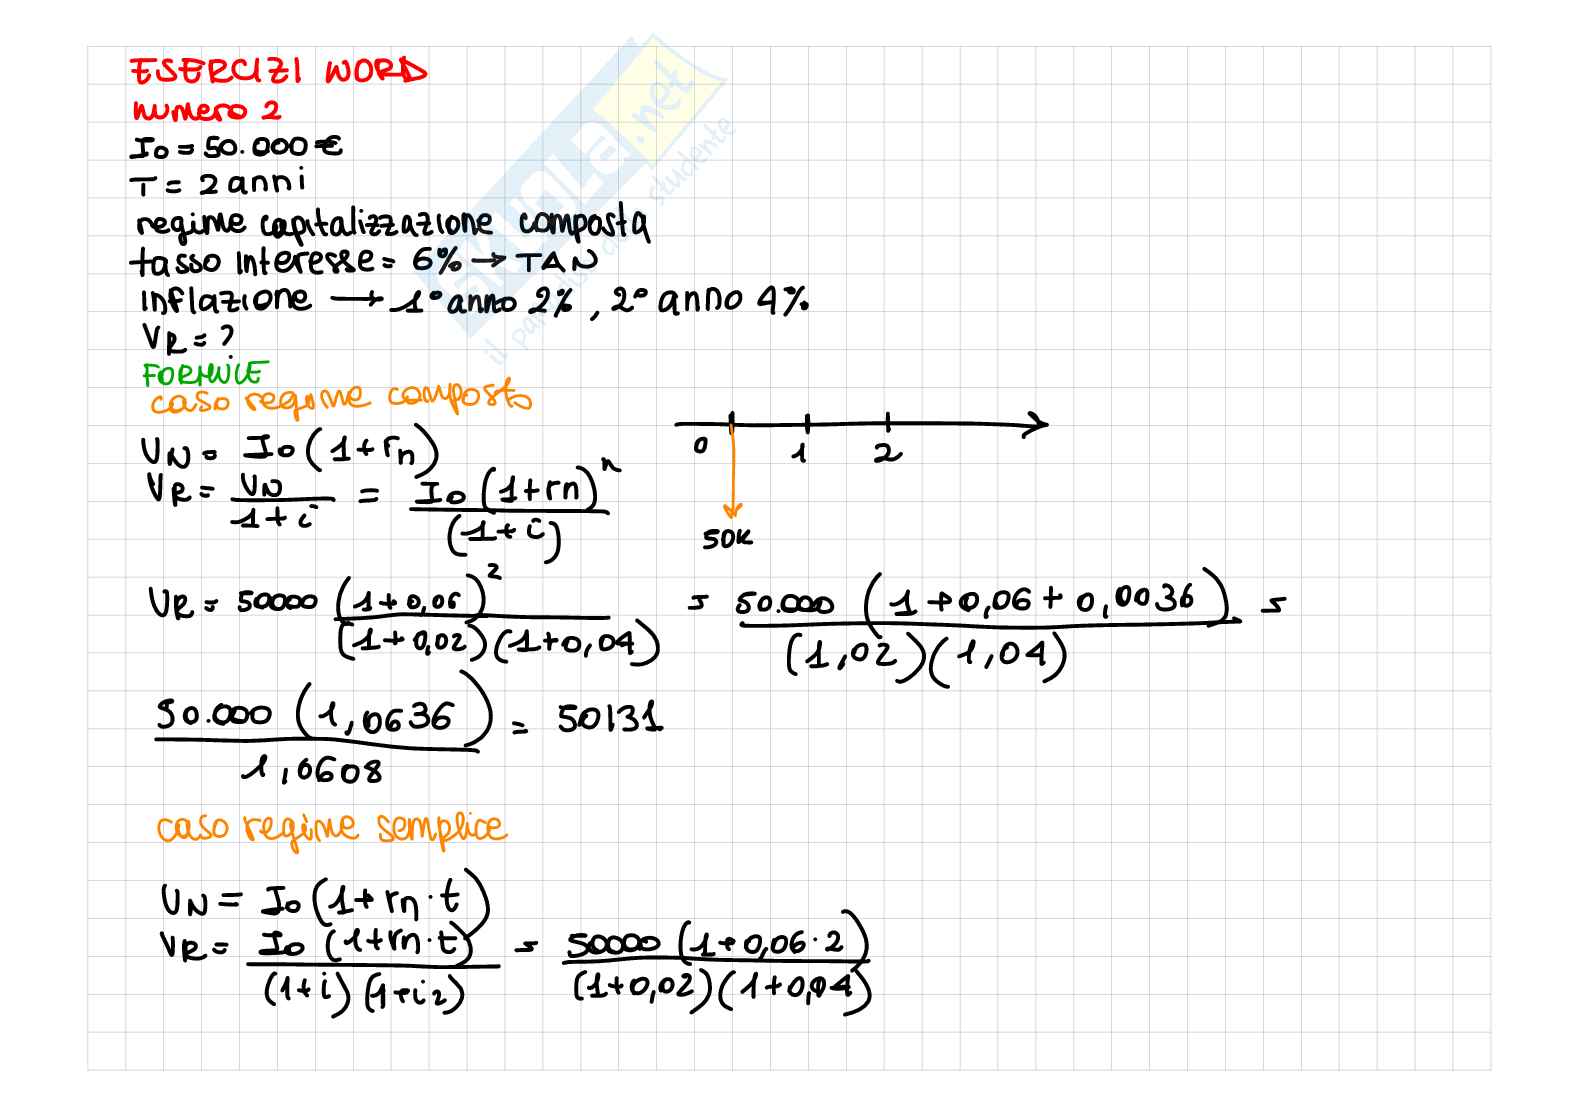 ESERCIZI WORD
numero 2
I0 = 50.000 €
T = 2 anni
regime capitalizzazione composta
tasso interesse = 6% → TAN
inflazione → 1° anno 2% , 2° anno 4%
VR = ?
FORMULE
caso regime composto
VN = I0 (1 + rn)
VR = VN / 1 + i = I0 (1 + rn)^n / (1 + i)
0 1 2
50K
VR = 50000 (1 + 0,06)^2 / (1 + 0,02)(1 + 0,04) = 50.000 (1 + 0,06 + 0,0036) / (1,02)(1,04) =
50.000 (1,0636) / 1,0608 = 50131
caso regime semplice
VN = I0 (1 + rn · t)
VR = I0 (1 + rn · t) / (1 + i)(1 + i2) = 50000 (1 + 0,06 · 2) / (1 + 0,02)(1 + 0,04)
skuola.net
il paradiso dello studente